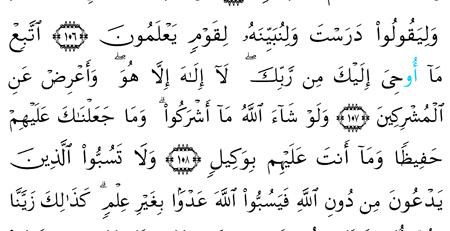 وَلِيَقُولُواْ دَرَسْتَ وَلِنُبَيِّنَهُۥ لِقَوْمٖ يَعْلَمُونَ ۝١٠٦ ٱتَّبِعْ
مَآ أُوحِىَ إِلَيْكَ مِن رَّبِّكَۖ لَآ إِلَٰهَ إِلَّا هُوَۖ وَأَعْرِضْ عَنِ
ٱلْمُشْرِكِينَ ۝١٠٧ وَلَوْ شَآءَ ٱللَّهُ مَآ أَشْرَكُواْۗ وَمَا جَعَلْنَٰكَ عَلَيْهِمْ
حَفِيظٗا وَمَآ أَنتَ عَلَيْهِم بِوَكِيلٖ ۝١٠٨ وَلَا تَسُبُّواْ ٱلَّذِينَ
يَدْعُونَ مِن دُونِ ٱللَّهِ فَيَسُبُّواْ ٱللَّهَ عَدْوَۢا بِغَيْرِ عِلْمٖۗ كَذَٰلِكَ زَيَّنَّا